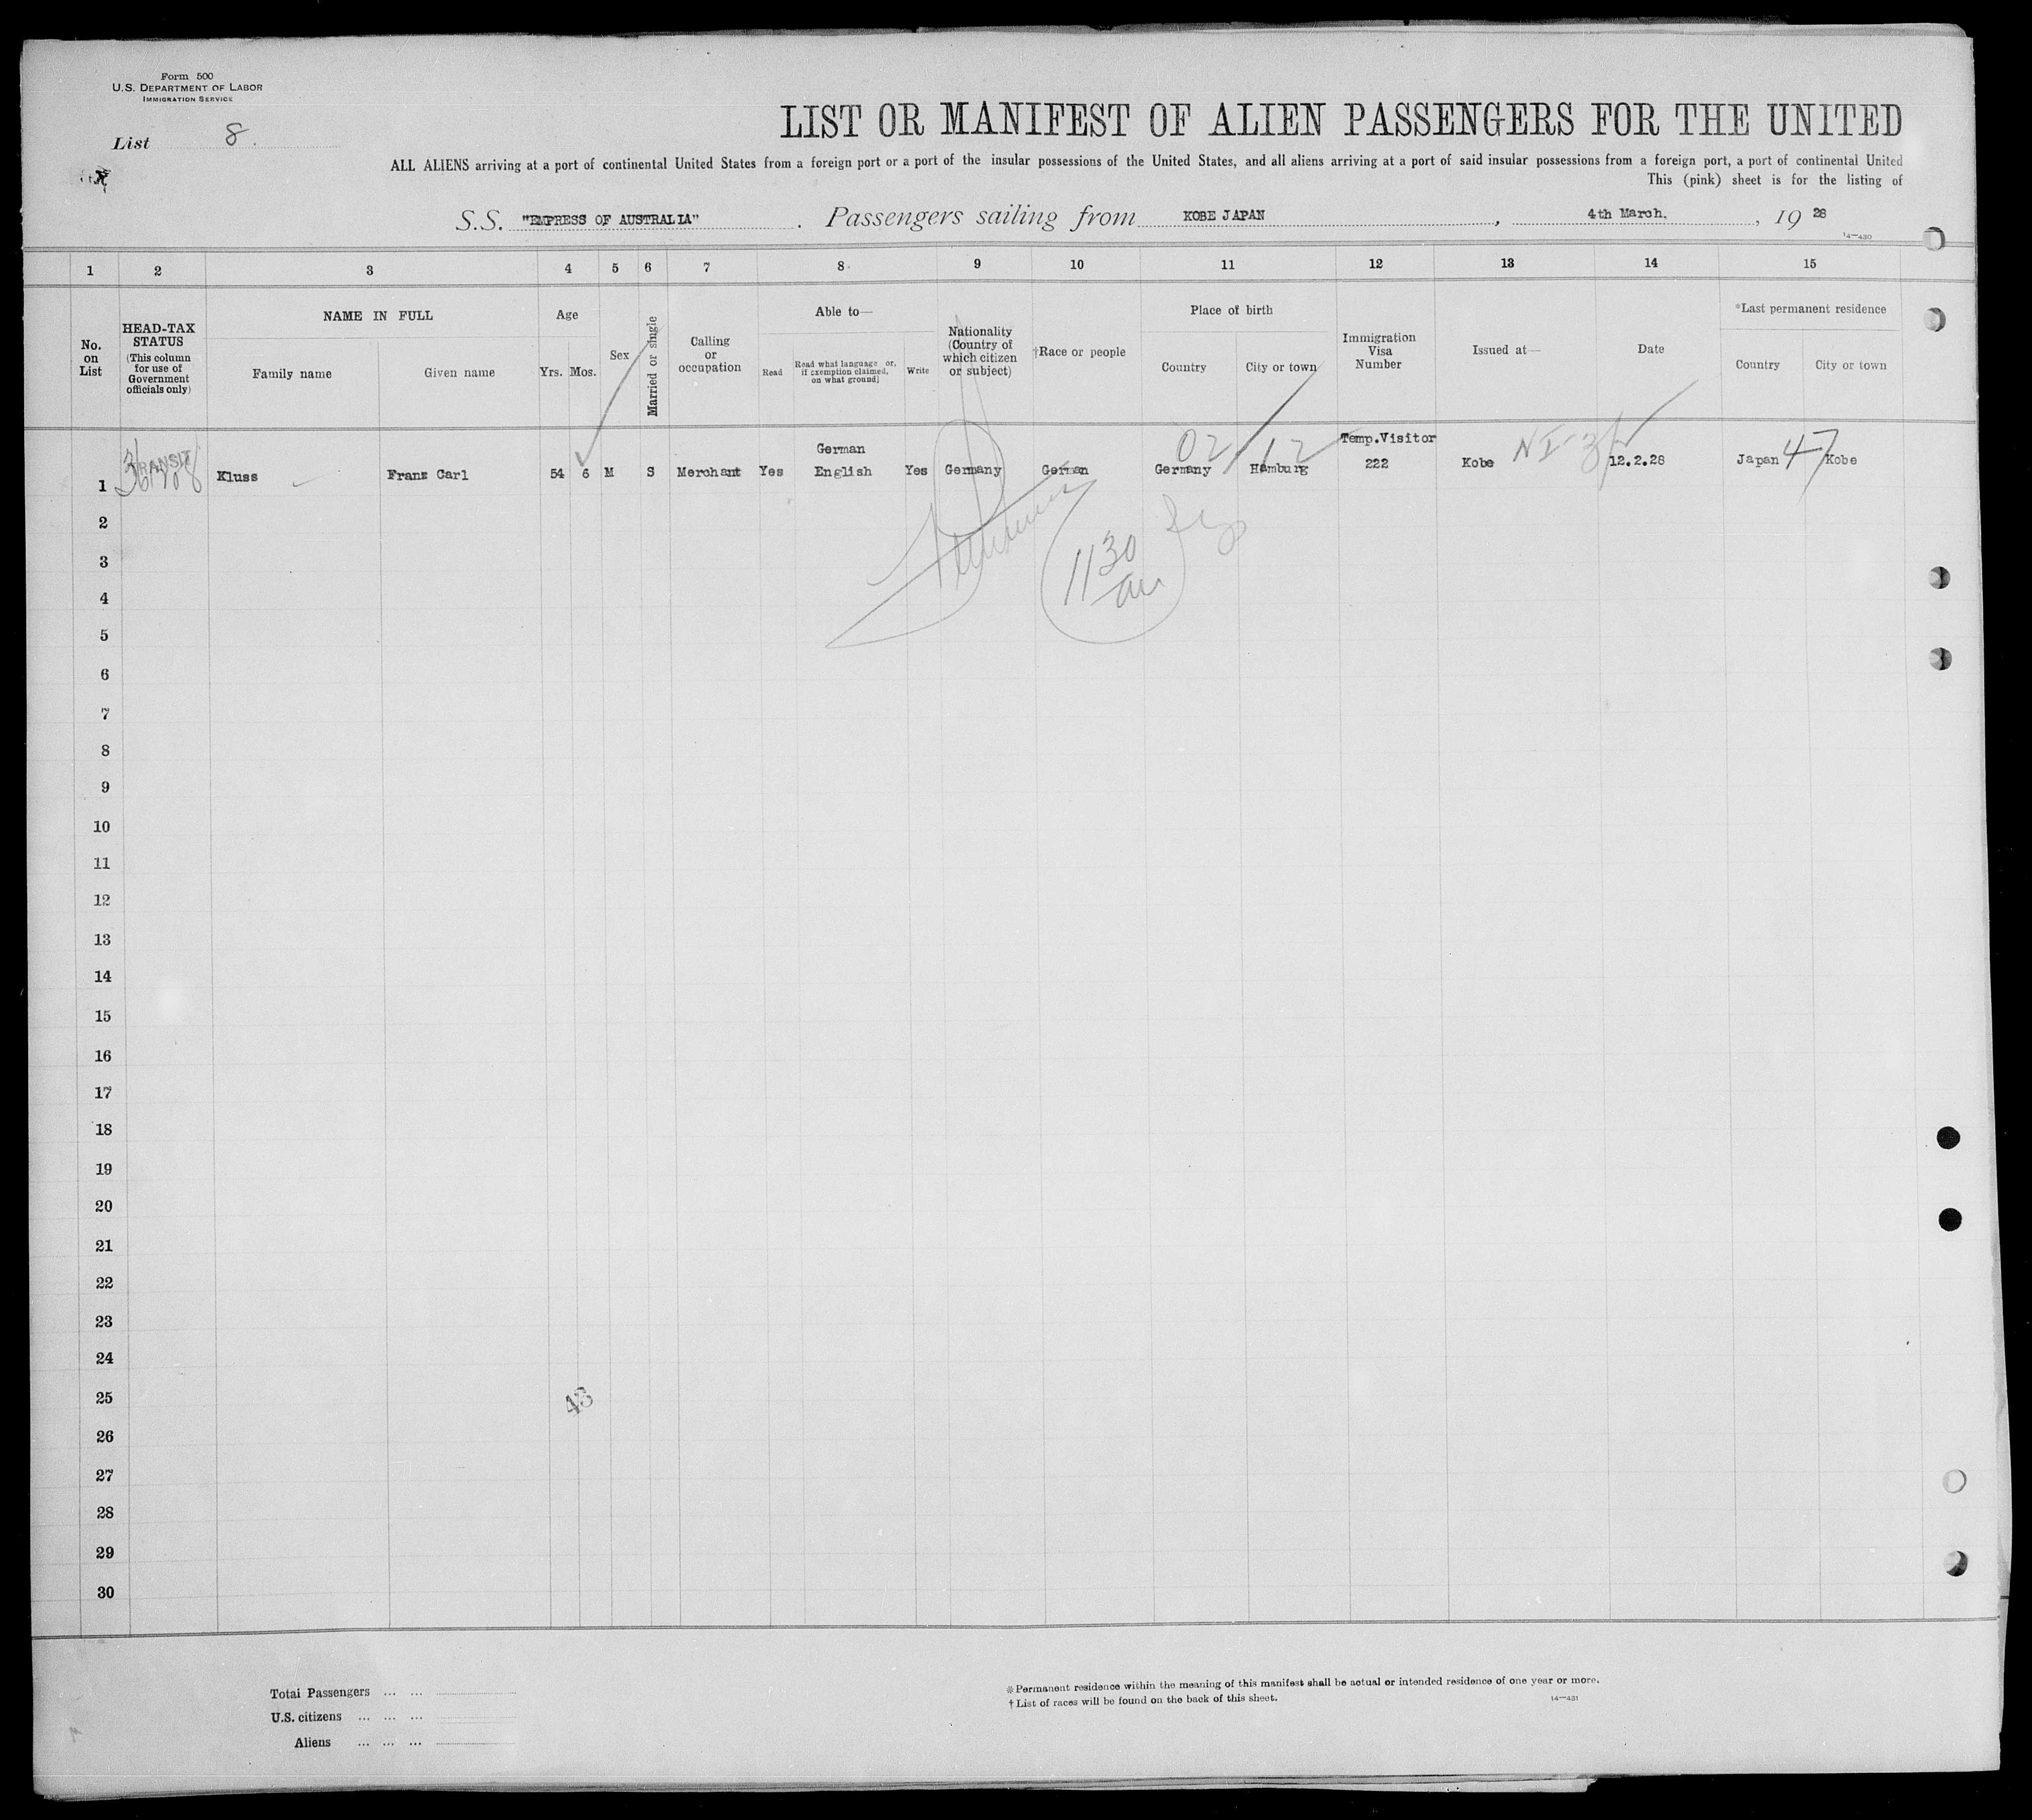 Form 500
U.S. DEPARTMENT OF LABOR
IMMIGRATION SERVICE
List 8.
LIST OR MANIFEST OF ALIEN PASSENGERS FOR THE UNITED
ALL ALIENS arriving at a port of continental United States from a foreign port or a port of the insular possessions of the United States, and all aliens arriving at a port of said insular possessions from a foreign port, a port of continental United
This (pink) sheet is for the listing of
S.S. "EMPRESS OF AUSTRALIA". Passengers sailing from KOBE JAPAN, 4th March., 19 28
14—430
1 2 3 4 5 6 7 8 9 10 11 12 13 14 15
No. on List
HEAD-TAX STATUS
(This column for use of Government officials only)
NAME IN FULL
Family name Given name
Age
Yrs. Mos.
Sex
Married or single
Calling or occupation
Able to—
Read Read what language [or, if exemption claimed, on what ground] Write
Nationality (Country of which citizen or subject)
†Race or people
Place of birth
Country City or town
Immigration Visa Number
Issued at—
Date
*Last permanent residence
Country City or town
TRANSIT
02 12 Temp.Visitor
German
1 Kluss Franz Carl 54 6 M S Merchant Yes English Yes Germany German Germany Hamburg 222 Kobe 12.2.28 Japan 47 Kobe
2
3
1130
am
4
5
6
7
8
9
10
11
12
13
14
15
16
17
18
19
20
21
22
23
24
25
43
26
27
28
29
30
Total Passengers ... ...
U.S. citizens ... ... ...
Aliens ... ... ...
*Permanent residence within the meaning of this manifest shall be actual or intended residence of one year or more.
†List of races will be found on the back of this sheet.
14—431